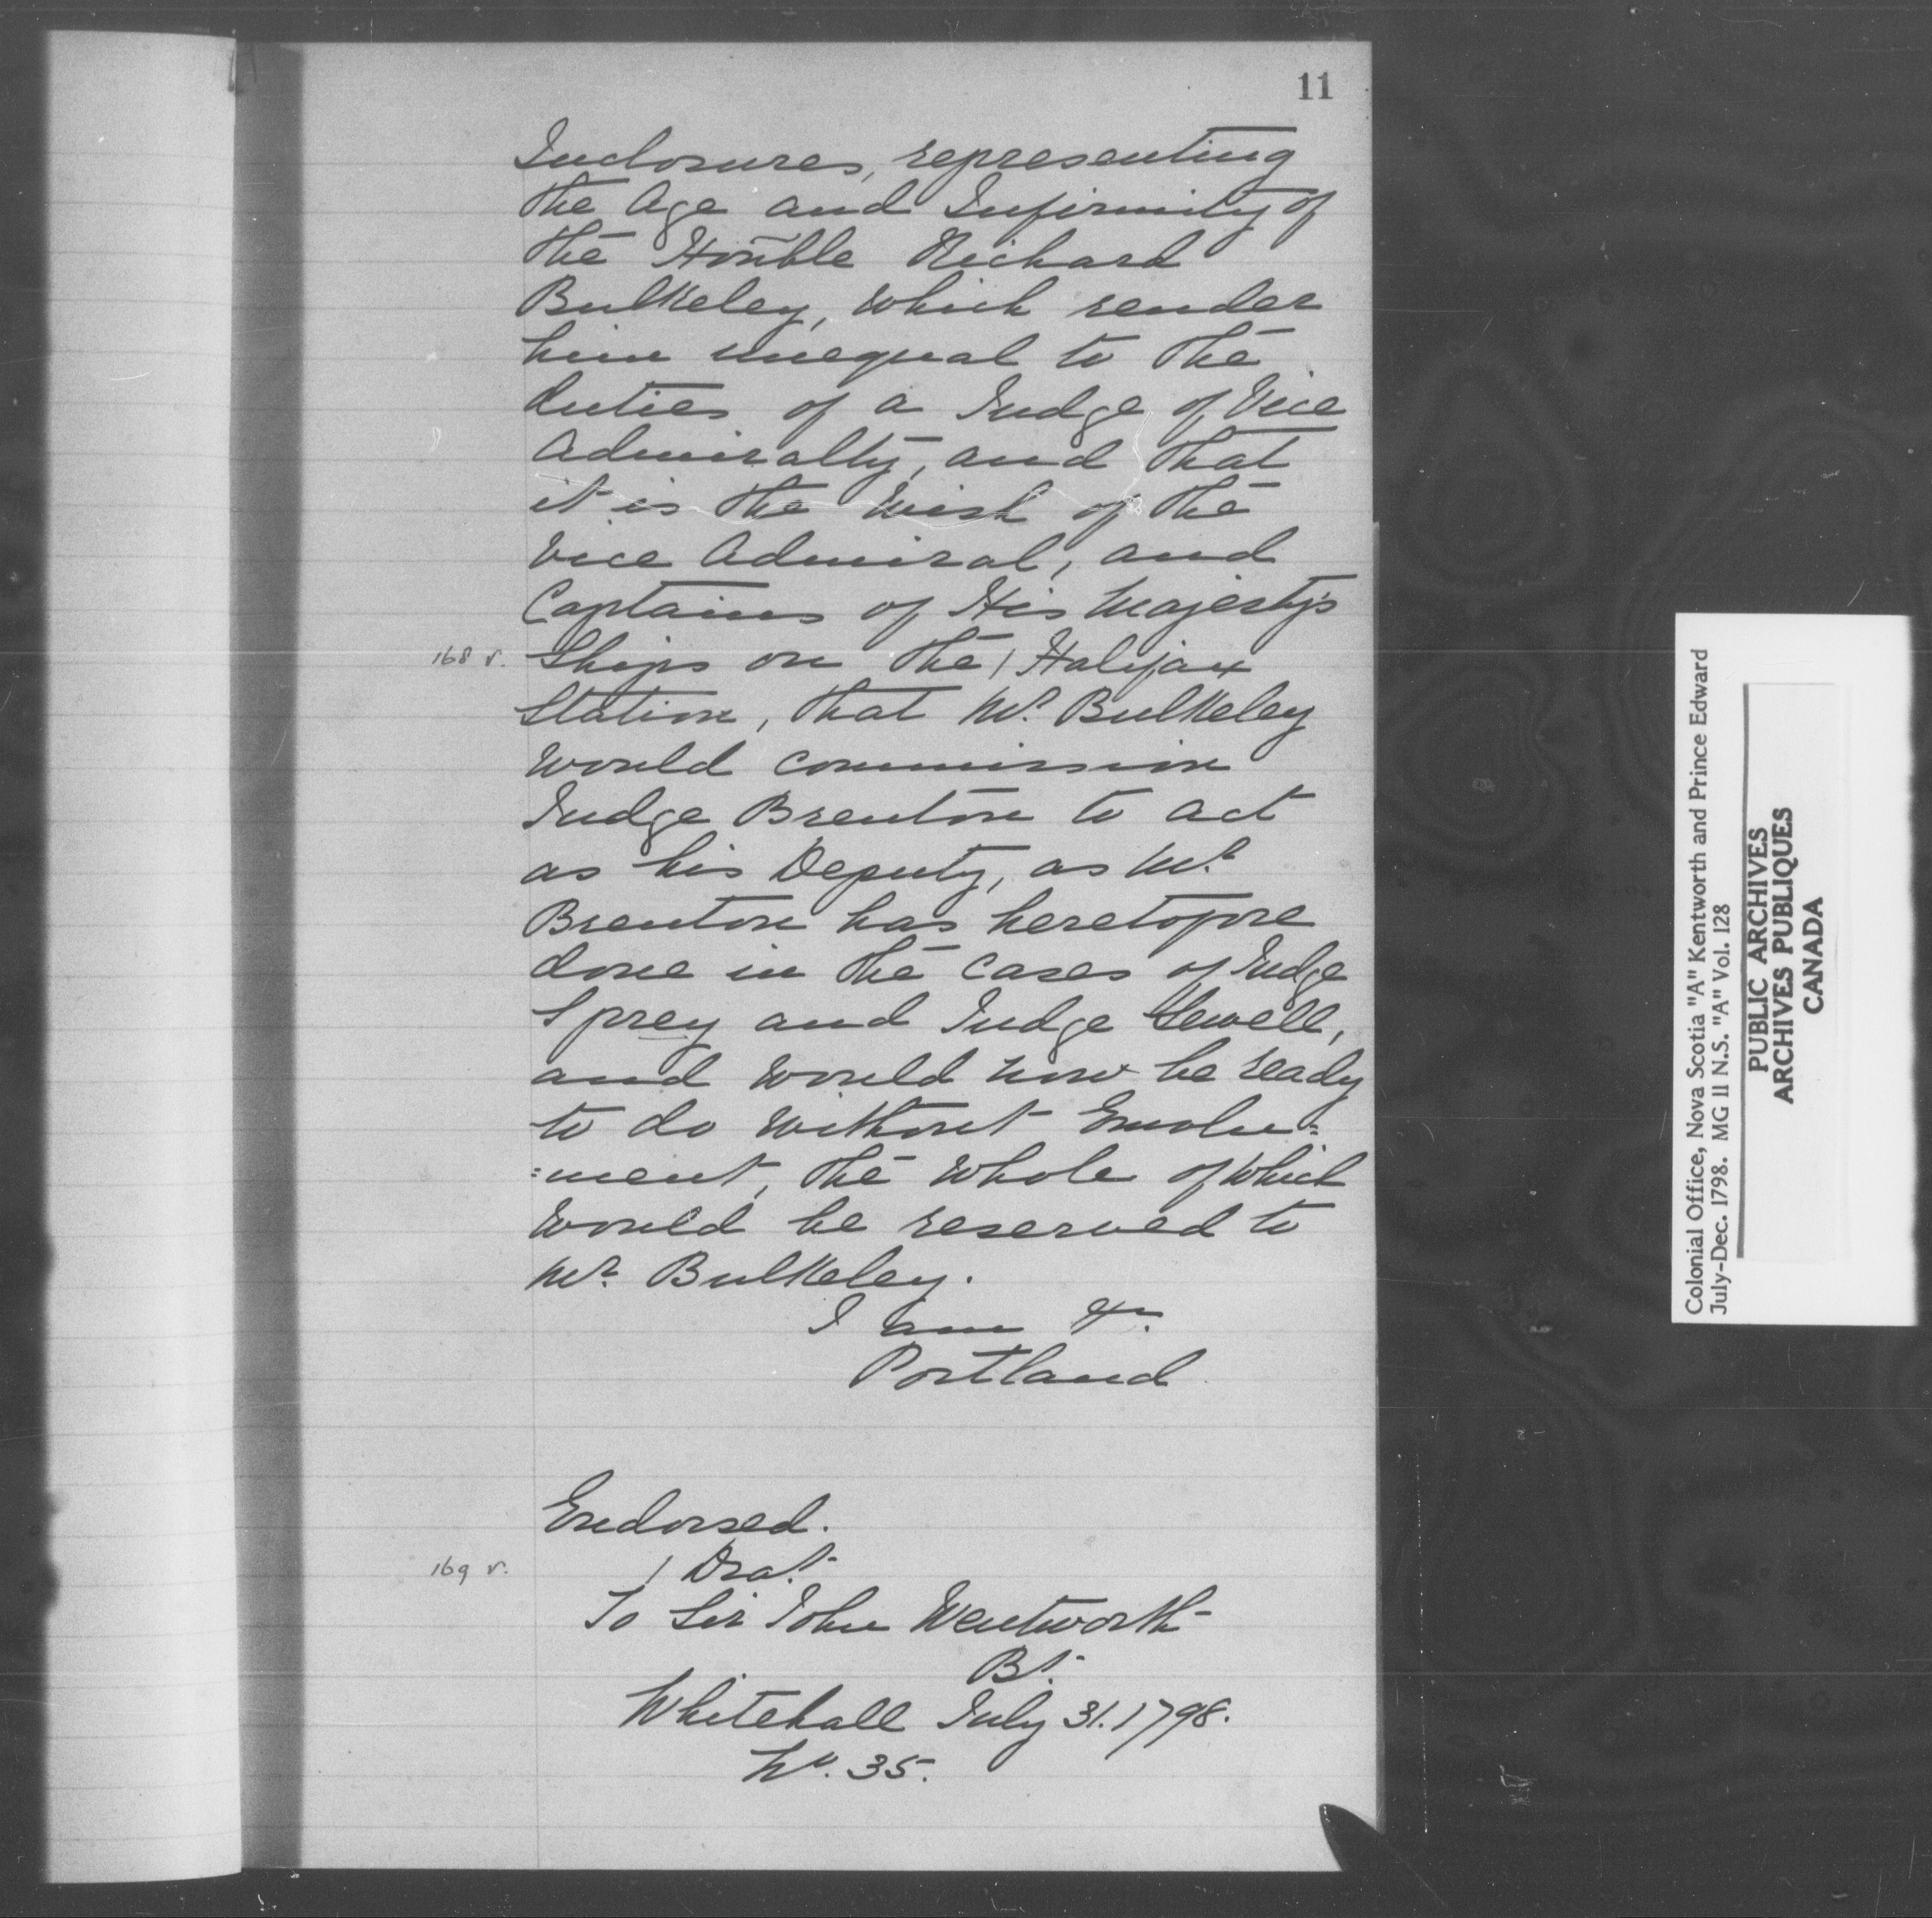 11
Inclosures, representing
the Age and Infirmity of
the Hon̄ble Richard
Bulkeley, which render
him unequal to the
duties of a Judge of Vice
Admiralty, and that
it is the Wish of the
Vice Admiral, and
Captains of His Majesty's
168 v. Ships on the / Halifax
Station, that Mr. Bulkeley
would commission
Judge Brenton to act
as his Deputy, as Mr.
Brenton has heretofore
done in the Cases of Judge
Sprey and Judge Sewell,
and would now be ready
to do without Emolu=
=ment, the whole of which
would be reserved to
Mr. Bulkeley.
I am &c.
Portland
Endorsed.
169 v. / Drat.
To Sir John Wentworth
Bt.
Whitehall July 31. 1798.
No. 35.
Colonial Office, Nova Scotia "A" Kentworth and Prince Edward
July-Dec. 1798. MG 11 N.S. "A" Vol. 128
PUBLIC ARCHIVES
ARCHIVES PUBLIQUES
CANADA